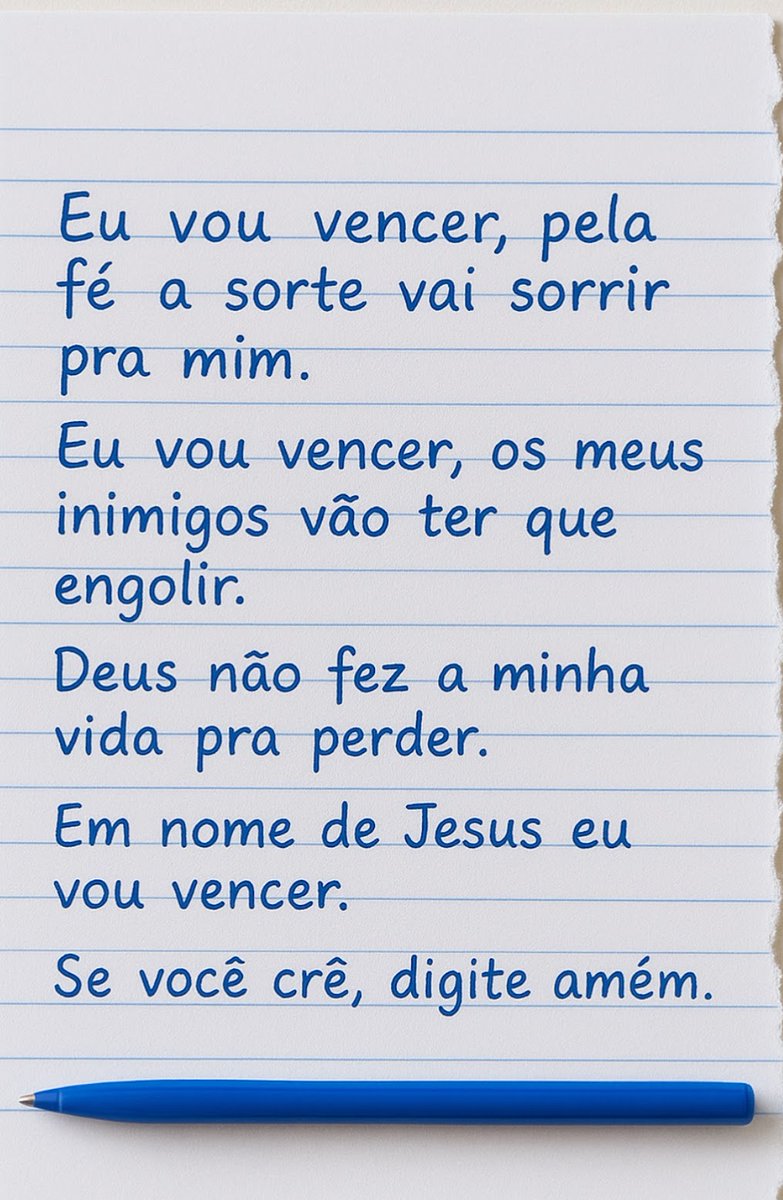 Eu vou vencer, pela
fé a sorte vai sorrir
pra mim.
Eu vou vencer, os meus
inimigos vão ter que
engolir.
Deus não fez a minha
vida pra perder.
Em nome de Jesus eu
vou vencer.
Se você crê, digite amém.